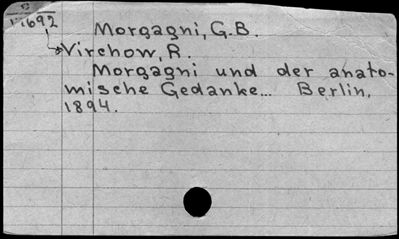 Morgagni, G.B.
Virchow, R.
Morgagni und der anato-
mische Gedanke... Berlin,
1894.